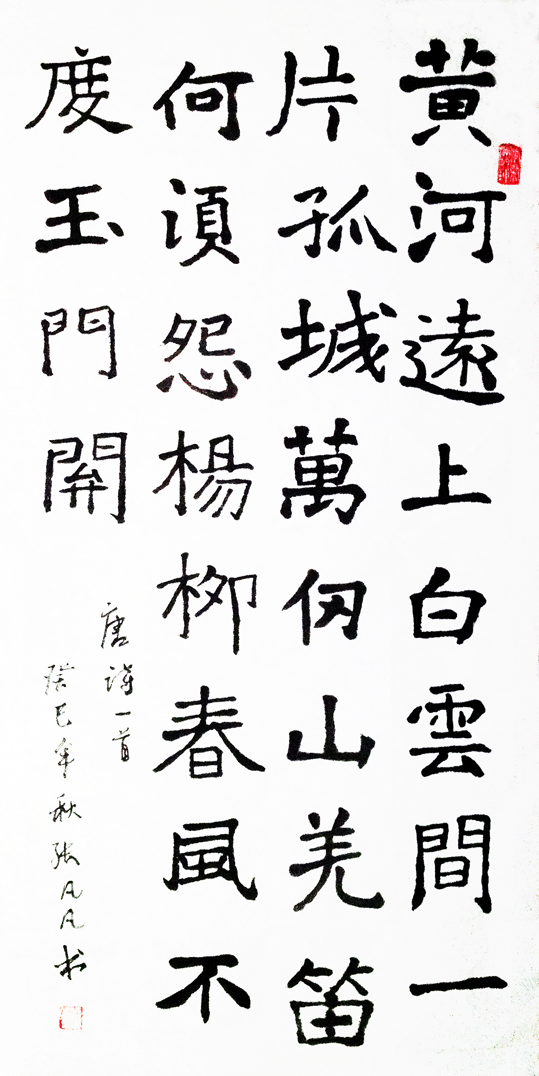 黄河遠上白雲間一
片孤城萬仞山羌笛
何須怨楊柳春風不
度玉門關
唐诗一首
癸巳年秋张凡凡书